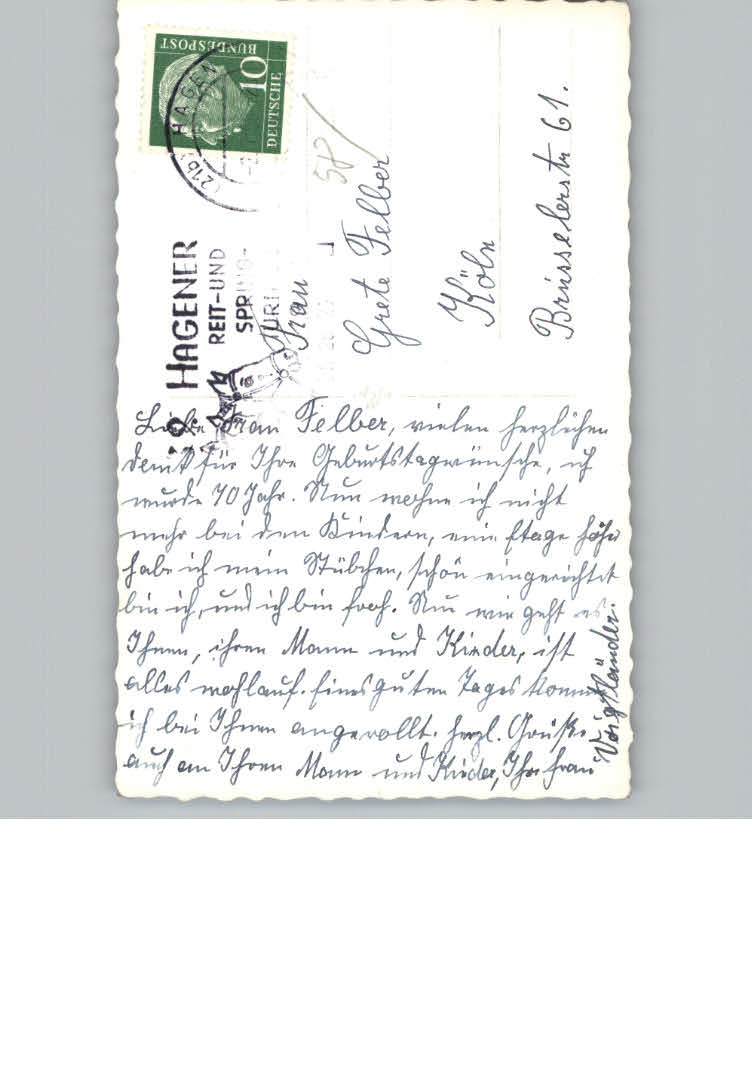 DEUTSCHE
BUNDESPOST
10
(21b) HAGEN
HAGENER
REIT-UND
SPRING-
TURNI
58
Frau
Grete Felber
Köln
Brüsselerstr 61.
Liebe Frau Felber, vielen herzlichen
Dank für Ihre Geburtstagwünsche, ich
wurde 70 Jahr. Nun wohne ich nicht
mehr bei den Kindern, eine Etage höher
habe ich mein Stübchen, schön eingerichtet
bin ich, und ich bin froh. Nun wie geht es
Ihnen, ihren Mann und Kinder, ist
alles wohlauf. Eines guten Tages komme
ich bei Ihnen angerollt. Herzl. Grüße
auch an Ihren Mann und Kinder, Ihre Frau
Voigtländer.